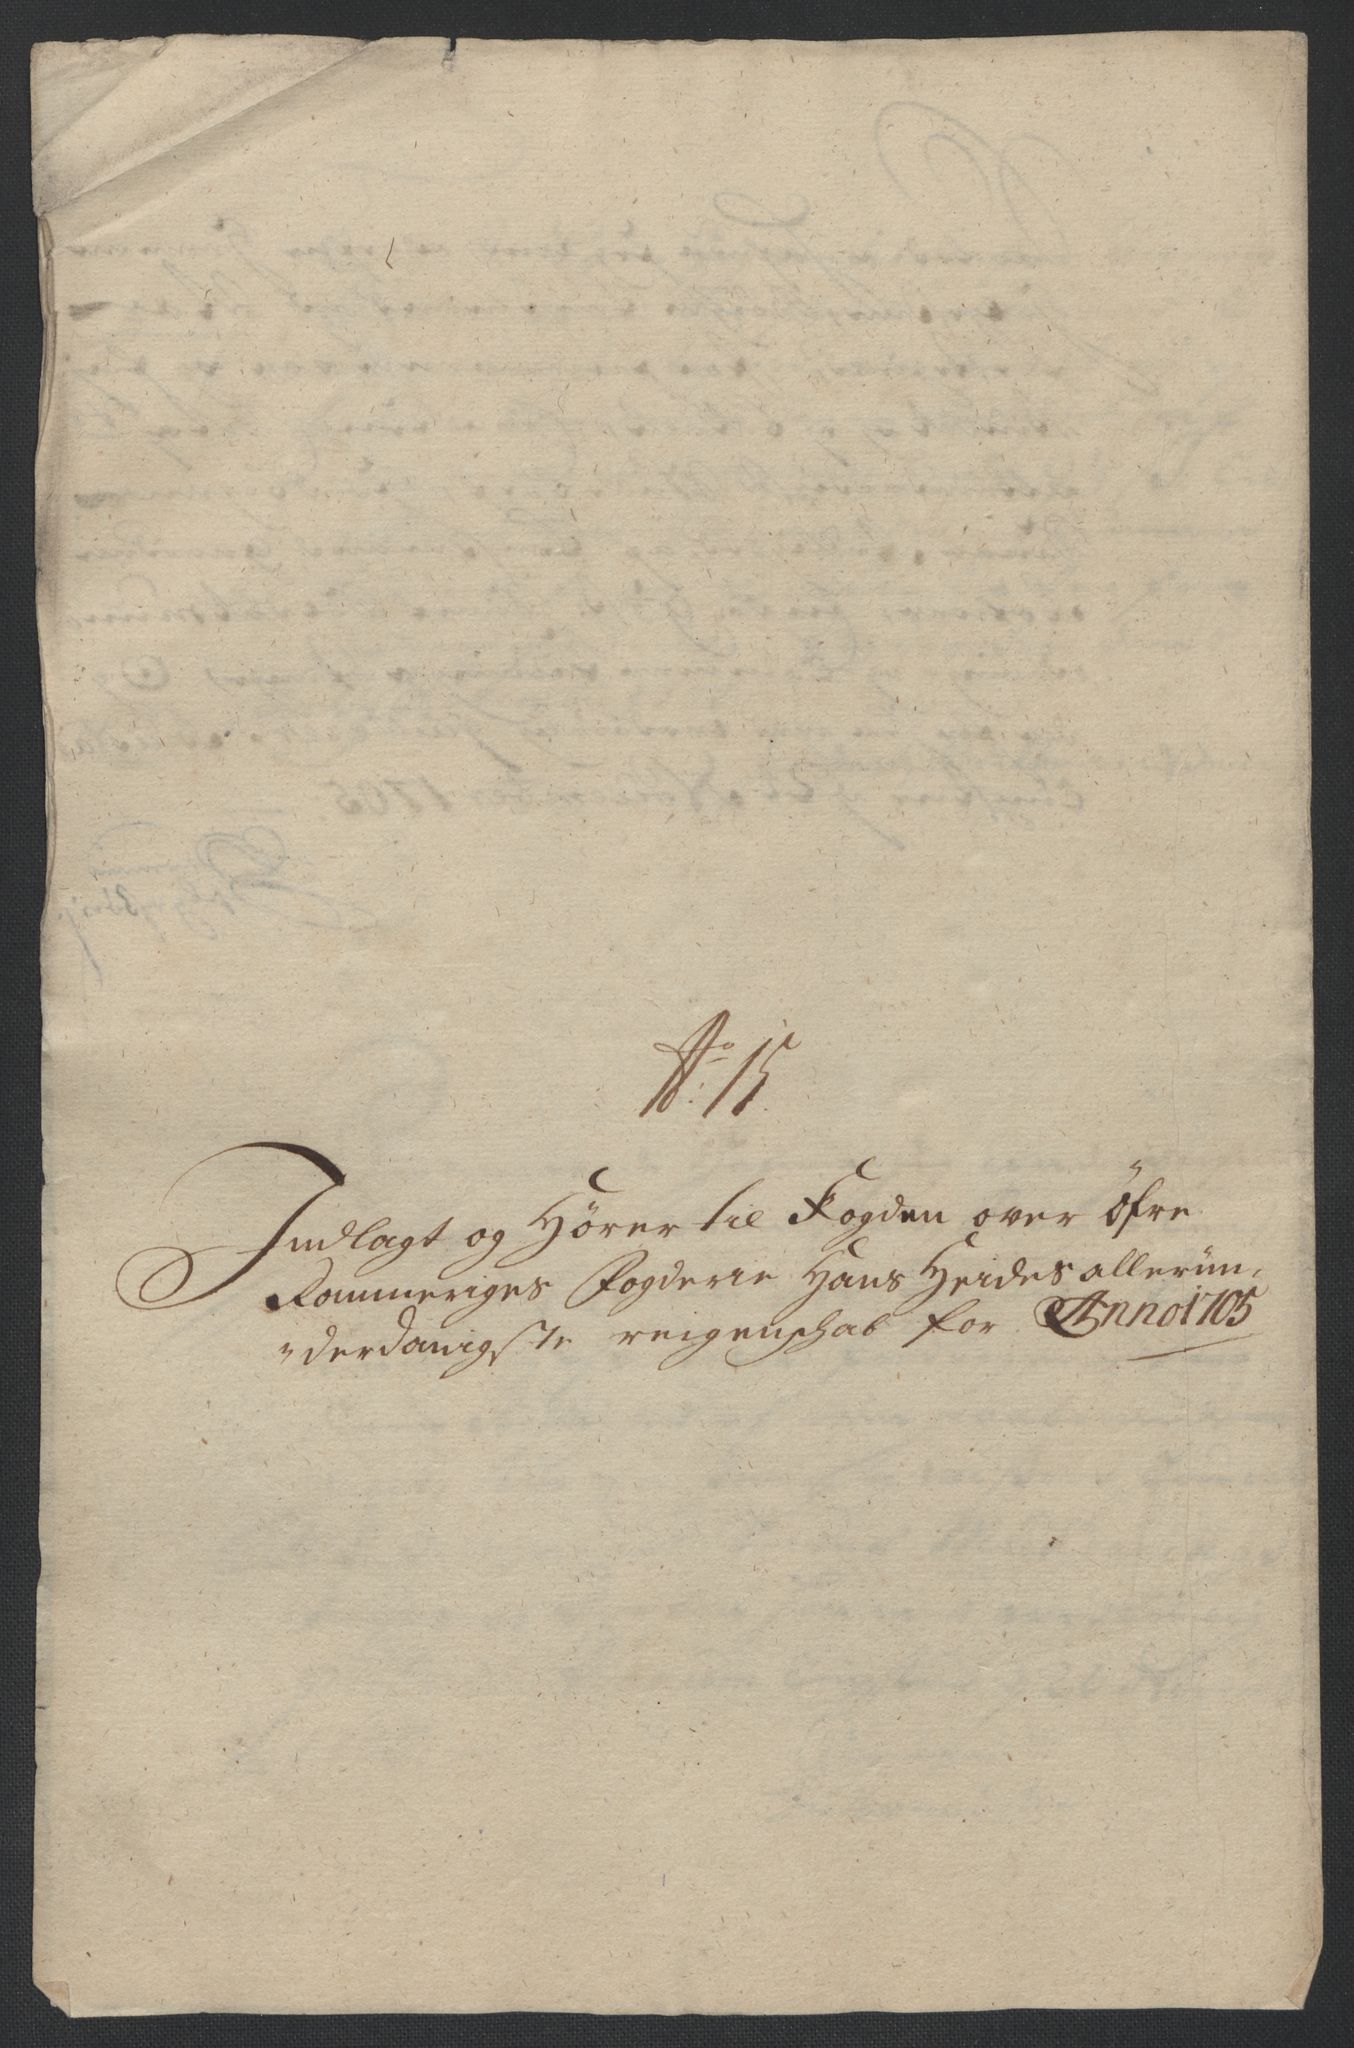 No: 15.
Indlagt og Hörer til Fogden over Öfre
Rommeriges Fogderie Hans Heides allerün,
"derdanigste reigenschab for Anno 1705